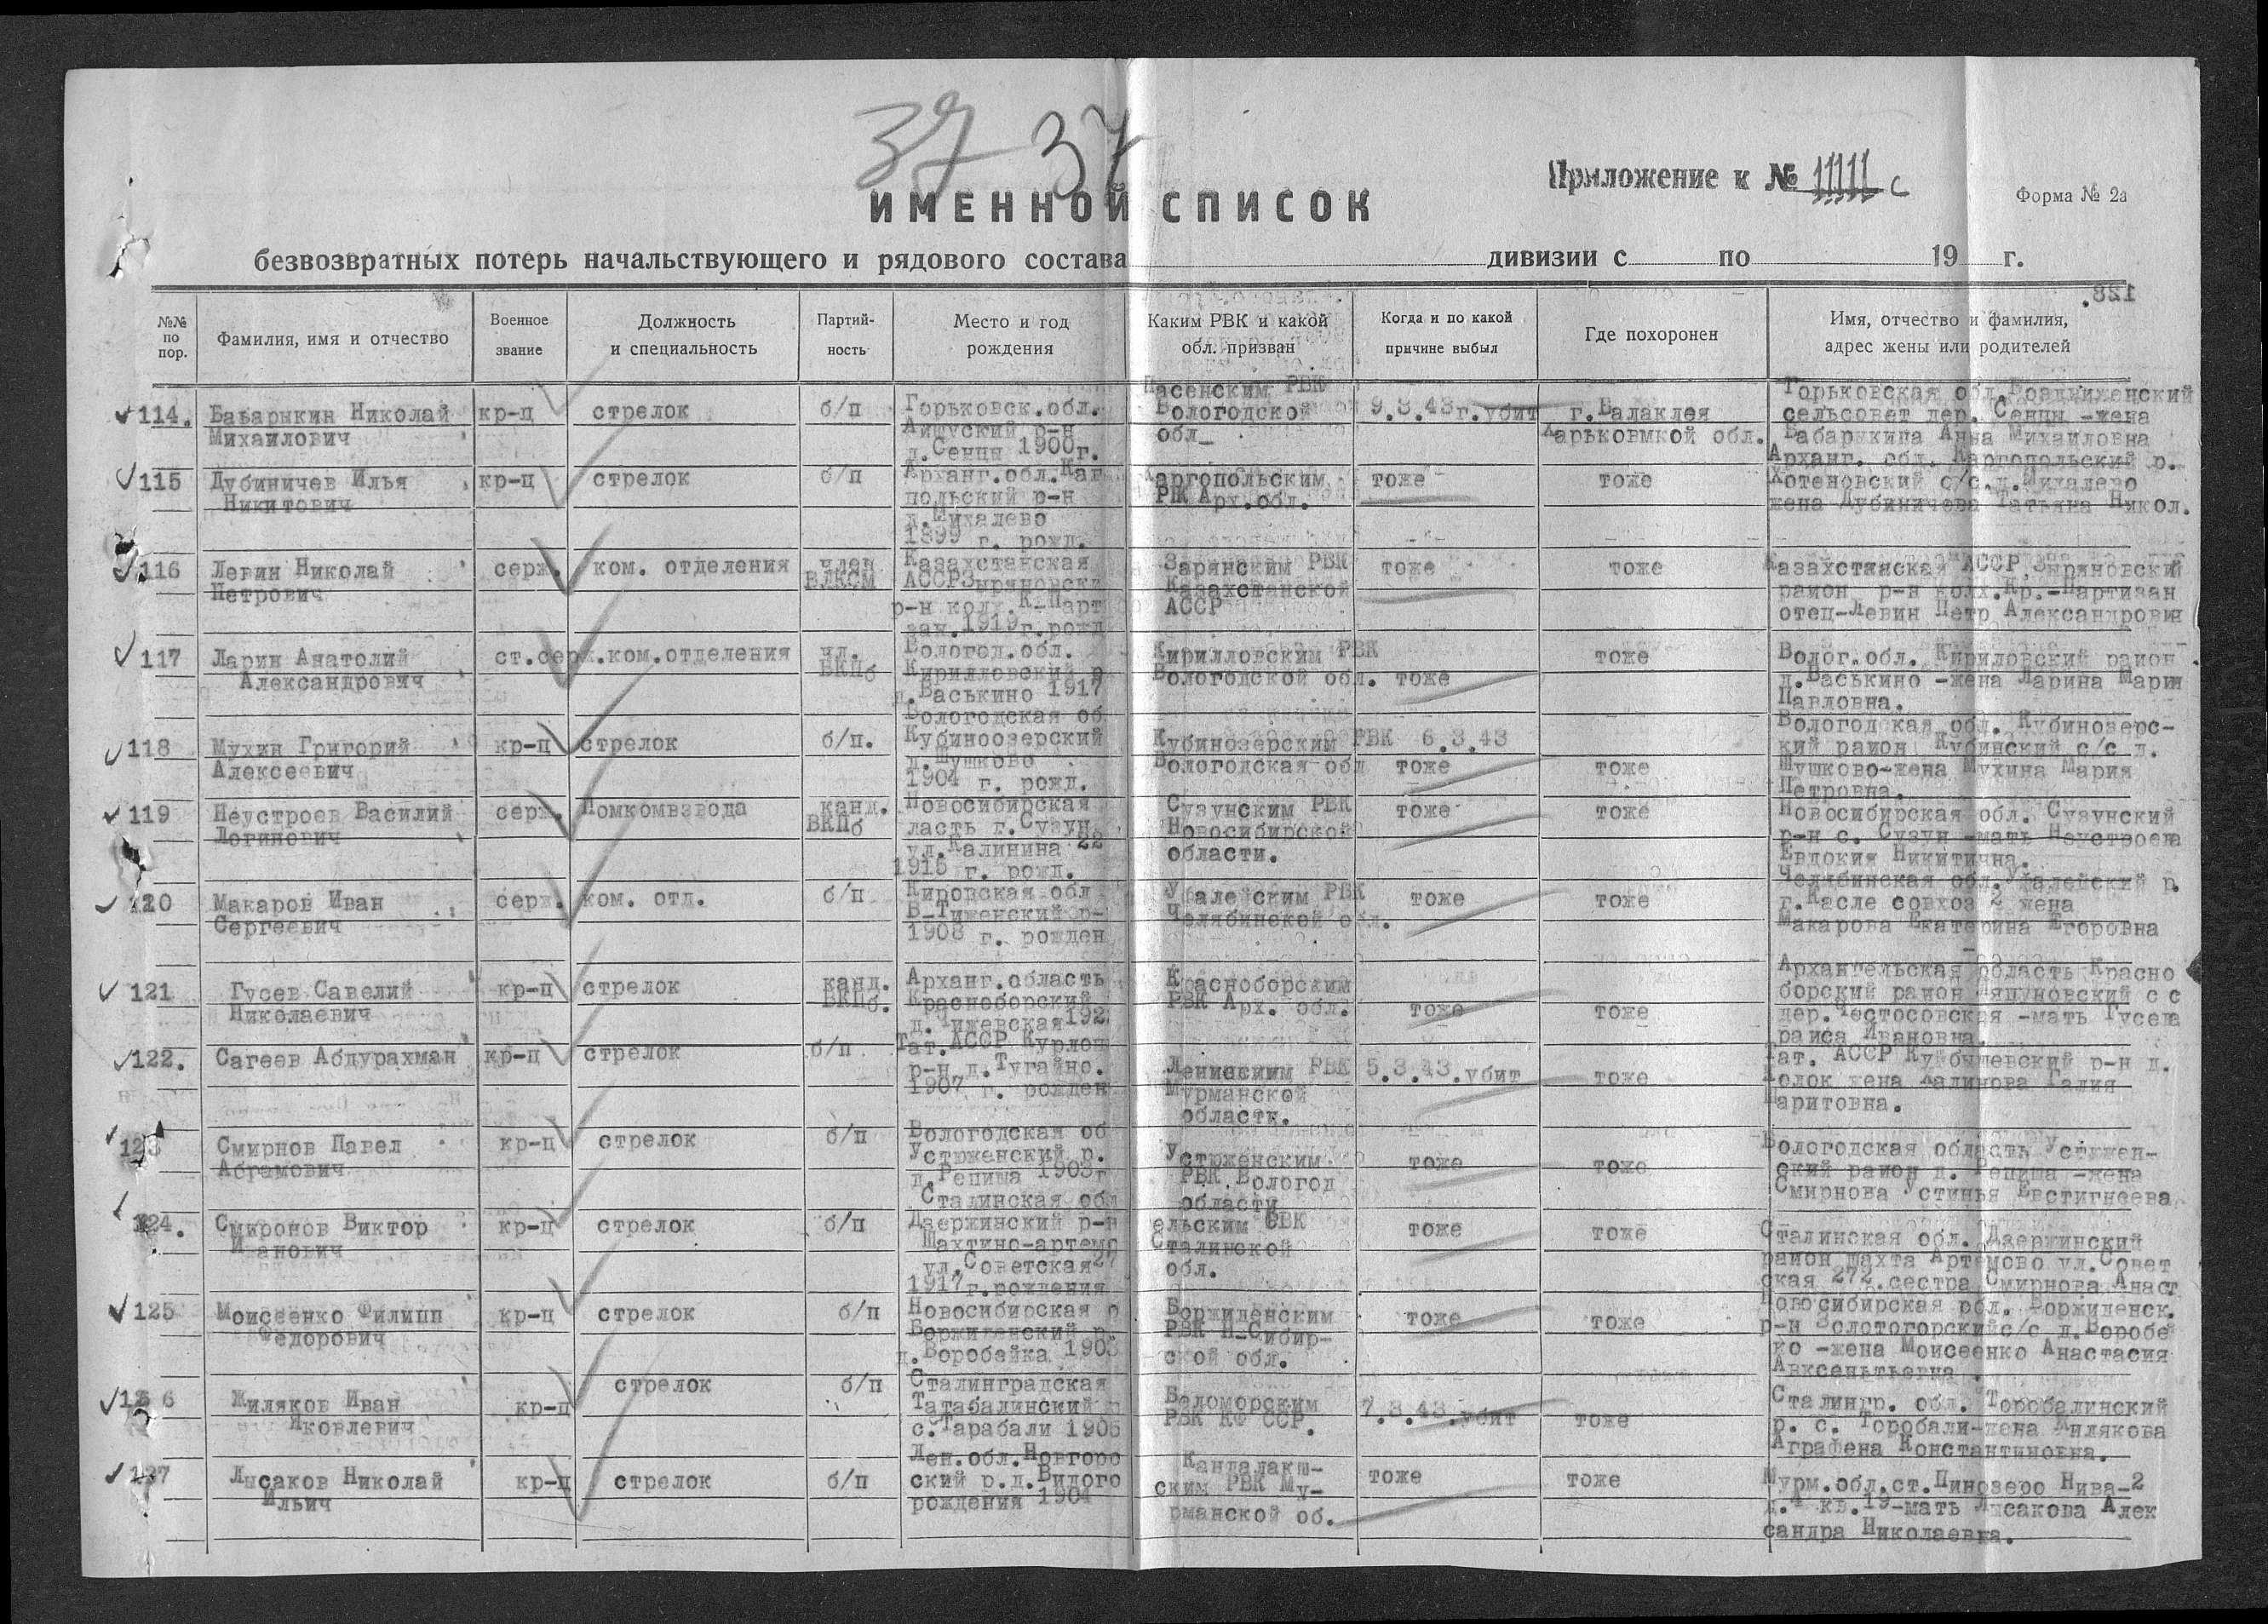 37 37
Приложение к № 11111 с
Форма № 2а
ИМЕННОЙ СПИСОК
безвозвратных потерь начальствующего и рядового состава дивизии с по 19 г.
128.
№№ по пор. Фамилия, имя и отчество Военное звание Должность и специальность Партий-ность Место и год рождения Каким РВК и какой обл. призван Когда и по какой причине выбыл Где похоронен Имя, отчество и фамилия, адрес жены или родителей
114. Бабарыкин Николай Михаилович кр-ц стрелок б/п Горьковск.обл. р-н д.Сенцы 1900г. РВК Вологодской обл 9.3.43г.убит г.Балаклея Харьковмкой обл. Горьковская обл. Воздвиженский сельсовет дер. Сенцы -жена Бабарыкина Анна Михаиловна
115 Дубиничев Илья Никитович кр-ц стрелок б/п Арханг.обл.Каг польский р-н д.Михалево 1899 г. рожд. Каргопольским РВК Арх.обл. тоже тоже Арханг. обл. Каргопольский р. Хотеновский с/с.д.Михалево жена Дубиничева Татьяна Никол.
116 Левин Николай Петрович серж. ком. отделения член ВЛКСМ Казахстанская АССР Зыряновски р-н колх.К-Парт зан.1919г.рожд Зарянским РВК Казахстанской АССР тоже тоже Казахстанская АССР Зыряновский район р-н колх.Кр.-Партизан отец-Левин Петр Александрович
117 Ларин Анатолий Александрович ст.серж. ком.отделения чл. ВКПб Вологод.обл. Кирилловский р д.Васькино 1917 Кирилловским РВК Вологодской обл. тоже тоже Волог.обл. Кириловский район д.Васькино -жена Ларина Мария Павловна.
118 Мухин Григорий Алексеевич кр-ц стрелок б/п. Вологодская об Кубиноозерский д.Шушково 1904 г. рожд. Кубинозерским РВК Вологодская обл 6.3.43 тоже тоже Вологодская обл. Кубинозерс-кий район Кубинский с/с д. Шушково-жена Мухина Мария Петровна.
119 Неустроев Василий Логинович серж. Помкомвзвода канд. ВКПб Новосибирская ласть г.Сузун ул.Калинина 22 1915 г. рожд. Сузунским РВК Новосибирской области. тоже тоже Новосибирская обл. Сузунский р-н с. Сузун -мать Неустроева Евдокия Никитична.
120 Макаров Иван Сергеевич серж. ком. отд. б/п Кировская обл р- 1908 г. рожден Уфалейским РВК Челябинской обл. тоже тоже Челябинская обл.Уфалейский р. г.Касле совхоз 2 жена Макарова Екатерина Егоровна
121 Гусев Савелий Николаевич кр-ц стрелок канд. ВКПб. Арханг.область Красноборский д. 192 Красноборским РВК Арх. обл. тоже тоже Архангельская область Красно борский район с с дер.Честосовская -мать Гусева раиса Ивановна.
122. Сагеев Абдурахман кр-ц стрелок б/п Тат.АССР р-н д.Тугайно. 1907 г. рожден РВК Мурманской области. 5.3.43.убит тоже Тат. АССР Куйбышевский р-н д. жена Галия Шаритовна.
123 Смирнов Павел Абрамович кр-ц стрелок б/п Вологодская об Устюженский р. д.Репища 1903г Устюженским РВК Вологод области тоже тоже Вологодская область Устюжен-ский район д. Репища -жена Смирнова Устинья Евстигнеева
124. Смиронов Виктор Иванович кр-ц стрелок б/п Сталинская обл Дзержинский р-н Шахтино-артемо ул.Советская27 1917г.рождения ельским РВК Сталинской обл. тоже тоже Сталинская обл. Дзержинский район шахта Артемово ул.Совет ская 272.сестра Смирнова Анаст
125 Моисеенко Филипп Федорович кр-ц стрелок б/п Новосибирская о р. д.Воробейка 1903 Боржиденским РВК Н-Сибир-ской обл. тоже тоже Новосибирская обл. Боржиденск. р-н Золотогорский с/с д.Воробе ко -жена Моисеенко Анастасия Авксентьевна.
126 Жиляков Иван Яковлевич кр-ц стрелок б/п Сталинградская Татабалинский с.Тарабали 1905 Беломорским РВК КФ ССР. 7.3.43.убит тоже Сталингр. обл. Торобалинский р. с. Торобали-жена Жилякова Аграфена Константиновна.
127 Лысаков Николай Ильич кр-ц стрелок б/п Лен.обл.Новгоро ский р.д.Видого рождения 1904 Кандалакш-ским РВК Му-рманской об. тоже тоже Мурм.обл.ст.Пинозеро Нива-2 д.4 кв.19-мать Лысакова Алек сандра Николаевна.